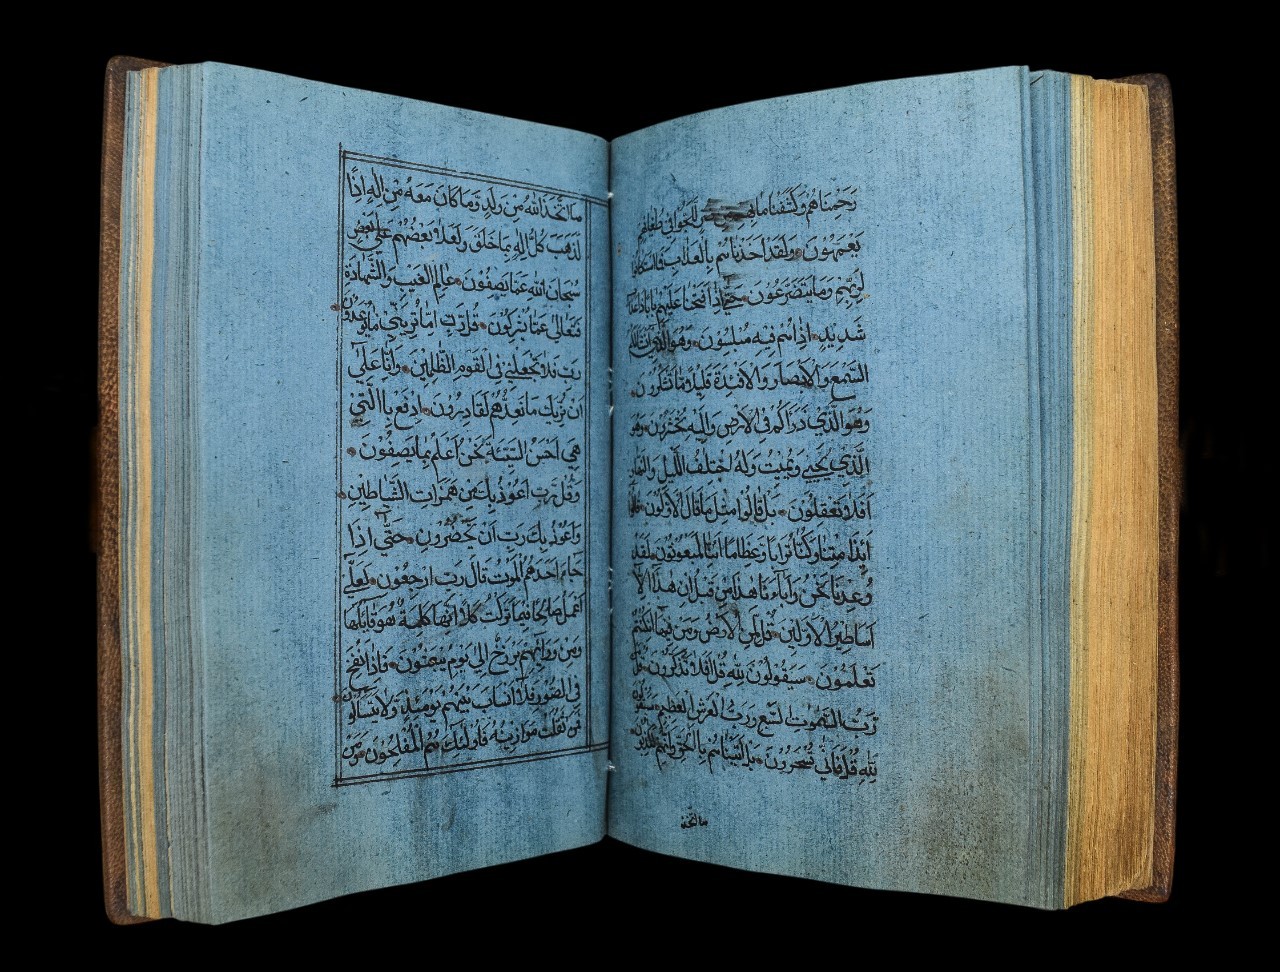 رَحِمْنَاهُمْ وَكَشَفْنَا مَا بِهِمْ مِنْ ضُرٍّ لَلَجُّوا فِي طُغْيَانِهِمْ
يَعْمَهُونَ وَلَقَدْ اَخَذْنَاهُمْ بِالْعَذَابِ فَمَا اسْتَكَانُوا
لِرَبِّهِمْ وَمَا يَتَضَرَّعُونَ حَتّٰى اِذَا فَتَحْنَا عَلَيْهِمْ بَابًا ذَا عَذَابٍ
شَدِيْدٍ اِذَا هُمْ فِيْهِ مُبْلِسُوْنَ وَهُوَ الَّذِي اَنْشَاَ لَكُمُ
السَّمْعَ وَالْاَبْصَارَ وَالْاَفْئِدَةَ قَلِيْلًا مَا تَشْكُرُوْنَ
وَهُوَ الَّذِي ذَرَاَكُمْ فِي الْاَرْضِ وَاِلَيْهِ تُحْشَرُوْنَ وَهُوَ
الَّذِي يُحْيِي وَيُمِيْتُ وَلَهُ اخْتِلٰفُ اللَّيْلِ وَالنَّهَارِ
اَفَلَا تَعْقِلُوْنَ بَلْ قَالُوْا مِثْلَ مَا قَالَ الْاَوَّلُوْنَ قَالُوا
اَئِذَا مِتْنَا وَكُنَّا تُرَابًا وَعِظَامًا اَئِنَّا لَمَبْعُوْثُوْنَ لَقَدْ
وُعِدْنَا نَحْنُ وَاٰبَاءُنَا هٰذَا مِنْ قَبْلُ اِنْ هٰذَا اِلَّا
اَسَاطِيْرُ الْاَوَّلِيْنَ قُلْ لِمَنِ الْاَرْضُ وَمَنْ فِيْهَا اِنْ كُنْتُمْ
تَعْلَمُوْنَ سَيَقُوْلُوْنَ لِلّٰهِ قُلْ اَفَلَا تَذَكَّرُوْنَ قُلْ مَنْ
رَبُّ السَّمٰوٰتِ السَّبْعِ وَرَبُّ الْعَرْشِ الْعَظِيْمِ سَيَقُوْلُوْنَ
لِلّٰهِ قُلْ فَاَنّٰى تُسْحَرُوْنَ بَلْ اَتَيْنَاهُمْ بِالْحَقِّ وَاِنَّهُمْ لَكٰذِبُوْنَ
ما اتخذ
مَا اتَّخَذَ اللّٰهُ مِنْ وَلَدٍ وَمَا كَانَ مَعَهُ مِنْ اِلٰهٍ اِذًا
لَذَهَبَ كُلُّ اِلٰهٍ بِمَا خَلَقَ وَلَعَلَا بَعْضُهُمْ عَلٰى بَعْضٍ
سُبْحَانَ اللّٰهِ عَمَّا يَصِفُوْنَ عَالِمِ الْغَيْبِ وَالشَّهَادَةِ
فَتَعَالٰى عَمَّا يُشْرِكُوْنَ قُلْ رَبِّ اِمَّا تُرِيَنِّي مَا يُوْعَدُوْنَ
رَبِّ فَلَا تَجْعَلْنِيْ فِي الْقَوْمِ الظّٰلِمِيْنَ وَاِنَّا عَلٰى
اَنْ نُرِيَكَ مَا نَعِدُهُمْ لَقَادِرُوْنَ اِدْفَعْ بِالَّتِيْ
هِيَ اَحْسَنُ السَّيِّئَةَ نَحْنُ اَعْلَمُ بِمَا يَصِفُوْنَ
وَقُلْ رَبِّ اَعُوْذُ بِكَ مِنْ هَمَزَاتِ الشَّيَاطِيْنِ
وَاَعُوْذُ بِكَ رَبِّ اَنْ يَحْضُرُوْنِ حَتّٰى اِذَا
جَاءَ اَحَدَهُمُ الْمَوْتُ قَالَ رَبِّ ارْجِعُوْنِ لَعَلِّي
اَعْمَلُ صَالِحًا فِيْمَا تَرَكْتُ كَلَّا اِنَّهَا كَلِمَةٌ هُوَ قَائِلُهَا
وَمِنْ وَرَائِهِمْ بَرْزَخٌ اِلٰى يَوْمِ يُبْعَثُوْنَ فَاِذَا نُفِخَ
فِي الصُّوْرِ فَلَا اَنْسَابَ بَيْنَهُمْ يَوْمَئِذٍ وَلَا يَتَسَاءَلُوْنَ
فَمَنْ ثَقُلَتْ مَوَازِيْنُهُ فَاُولٰئِكَ هُمُ الْمُفْلِحُوْنَ وَمَنْ